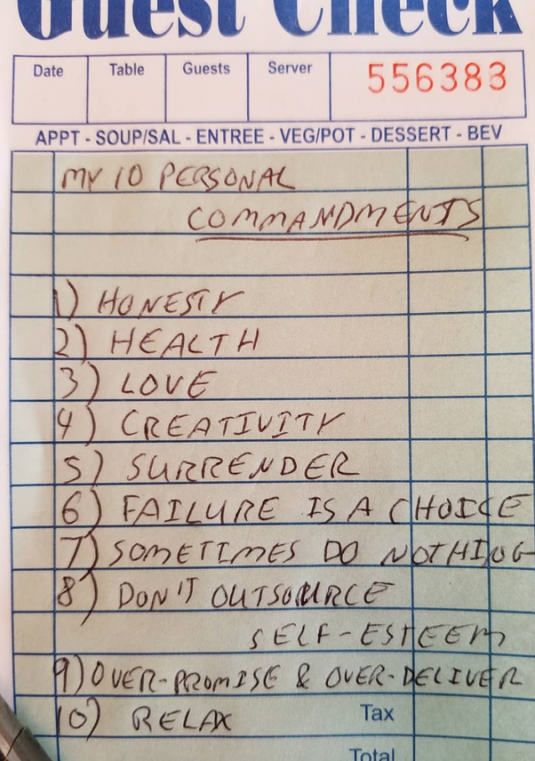 Guest Check
Date Table Guests Server 556383
APPT - SOUP/SAL - ENTREE - VEG/POT - DESSERT - BEV
MY 10 PERSONAL
COMMANDMENTS
1) HONESTY
2) HEALTH
3) LOVE
4) CREATIVITY
5) SURRENDER
6) FAILURE IS A CHOICE
7) SOMETIMES DO NOTHING
8) DON'T OUTSOURCE
SELF-ESTEEM
9) OVER-PROMISE & OVER-DELIVER
10) RELAX Tax
Total